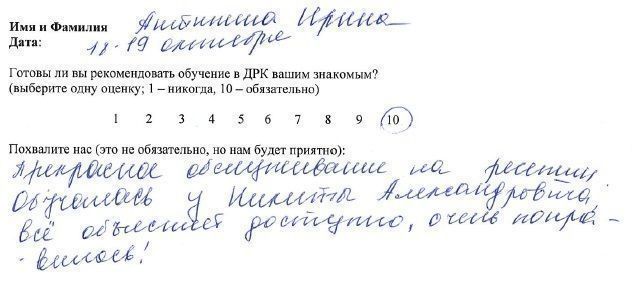 Имя и Фамилия Антипина Ирина
Дата: 18-19 октября
Готовы ли вы рекомендовать обучение в ДРК вашим знакомым?
(выберите одну оценку; 1 – никогда, 10 – обязательно)
1 2 3 4 5 6 7 8 9 10
Похвалите нас (это не обязательно, но нам будет приятно):
Прекрасное обслуживание на ресепшн
Обучалась у Никиты Александровича,
всё объясняет доступно, очень понра-
вилось!